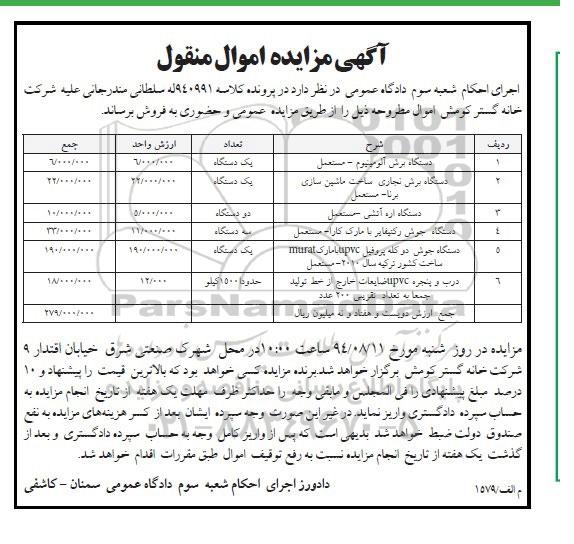 آگهی مزایده اموال منقول
اجرای احکام شعبه سوم دادگاه عمومی در نظر دارد در پرونده کلاسه ۹۴۰۹۹۱له سلطانی مندرجانی علیه شرکت
خانه گستر کومش اموال مطروحه ذیل را از طریق مزایده عمومی و حضوری به فروش برساند.
ردیف شرح تعداد ارزش واحد جمع
۱ دستگاه برش آلومینیوم - مستعمل یک دستگاه ۶/۰۰۰/۰۰۰ ۶/۰۰۰/۰۰۰
۲ دستگاه برش نجاری ساخت ماشین سازی یک دستگاه ۲۲/۰۰۰/۰۰۰ ۲۲/۰۰۰/۰۰۰
برنا- مستعمل
۳ دستگاه اره آتشی -مستعمل دو دستگاه ۵/۰۰۰/۰۰۰ ۱۰/۰۰۰/۰۰۰
۴ دستگاه جوش رکتیفایر با مارک کارا- مستعمل سه دستگاه ۱۱/۰۰۰/۰۰۰ ۳۳/۰۰۰/۰۰۰
۵ دستگاه جوش دو کله پروفیل upvcبامارکmurat یک دستگاه ۱۹۰/۰۰۰/۰۰۰ ۱۹۰/۰۰۰/۰۰۰
ساخت کشور ترکیه سال ۲۰۱۰-مستعمل
۶ درب و پنجره upvcضایعات خارج از خط تولید حدودا۱۵۰۰کیلو ۱۲/۰۰۰ ۱۸/۰۰۰/۰۰۰
جمعا به تعداد تقریبی ۲۰۰ عدد
جمع ارزش دویست و هفتاد و نه میلیون ریال ۲۷۹/۰۰۰/۰۰۰
مزایده در روز شنبه مورخ ۹۴/۰۸/۱۱ ساعت ۱۰:۰۰در محل شهرک صنعتی شرق خیابان اقتدار ۹
شرکت خانه گستر کومش برگزار خواهد شد.برنده مزایده کسی خواهد بود که بالاترین قیمت را پیشنهاد و ۱۰
درصد مبلغ پیشنهادی را فی المجلس و مابقی وجه را حداکثر ظرف مهلت یک هفته از تاریخ انجام مزایده به
حساب سپرده دادگستری واریز نماید در غیر این صورت وجه سپرده ایشان بعد از کسر هزینه‌های مزایده به نفع
صندوق دولت ضبط خواهد شد بدیهی است که پس از واریز کامل وجه به حساب سپرده دادگستری و بعد از
گذشت یک هفته از تاریخ انجام مزایده نسبت به رفع توقیف اموال طبق مقررات اقدام خواهد شد.
دادورز اجرای احکام شعبه سوم دادگاه عمومی سمنان - کاشفی
م الف/۱۵۷۹
ParsNamadData
۰۲۱-۸۸۳۴۹۶۷۰-۵